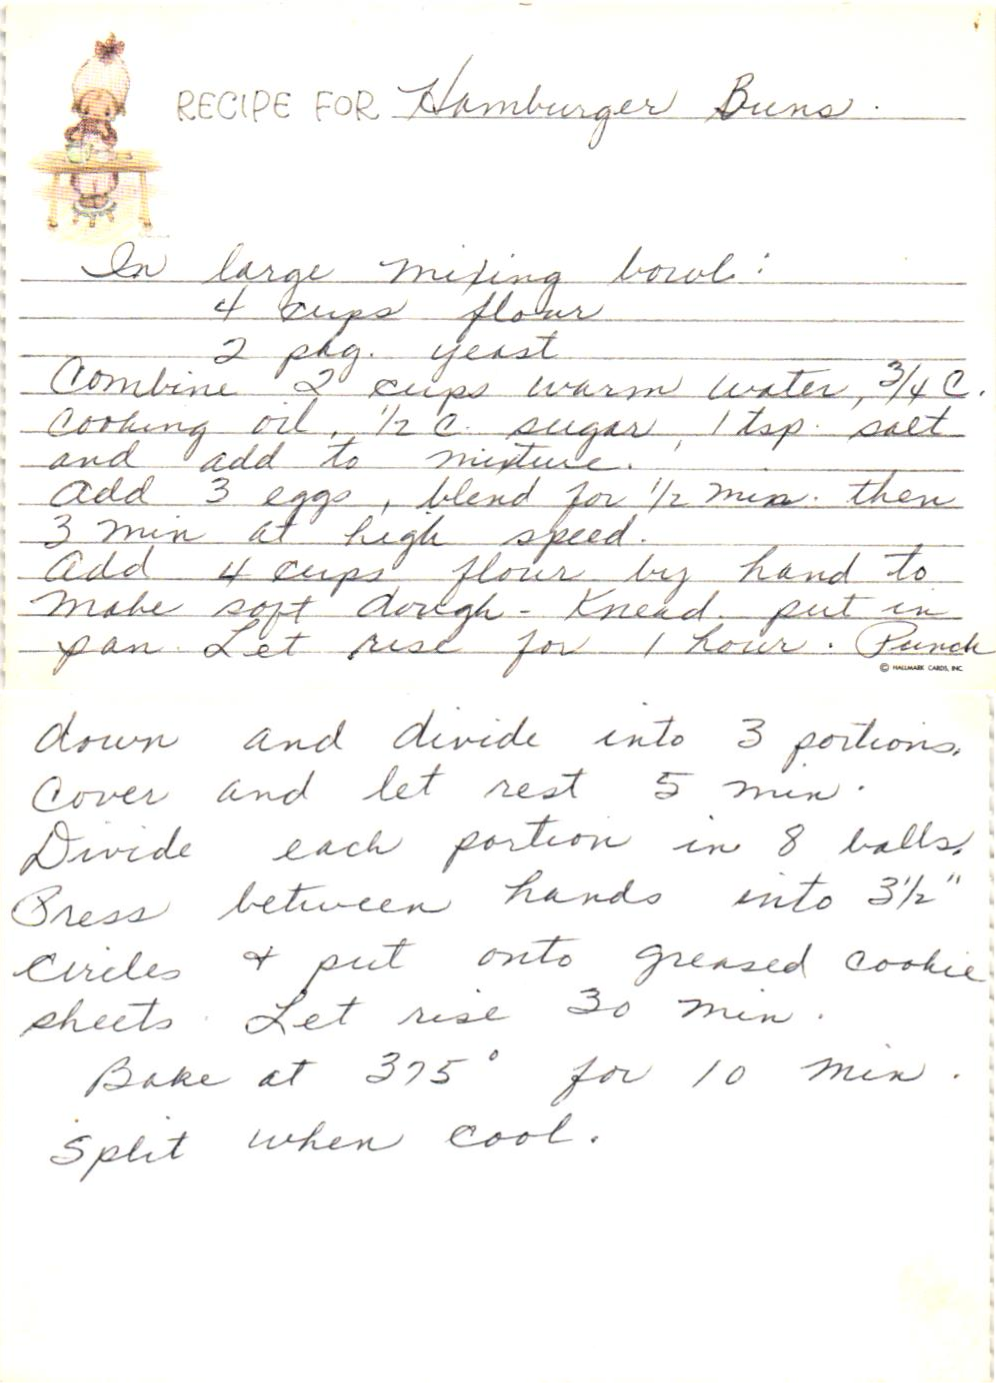 RECIPE FOR Hamburger Buns.
In large mixing bowl:
4 cups flour
2 pkg. yeast
Combine 2 cups warm water, 3/4 C.
cooking oil, 1/2 C. sugar, 1 tsp. salt
and add to mixture.
Add 3 eggs, blend for 1/2 min. then
3 min at high speed.
Add 4 cups flour by hand to
make soft dough - Knead. put in
pan. Let rise for 1 hour. Punch
© HALLMARK CARDS, INC.
down and divide into 3 portions.
Cover and let rest 5 min.
Divide each portion in 8 balls.
Press between hands into 3 1/2"
circles & put onto greased cookie
sheets. Let rise 30 min.
Bake at 375° for 10 min.
Split when cool.